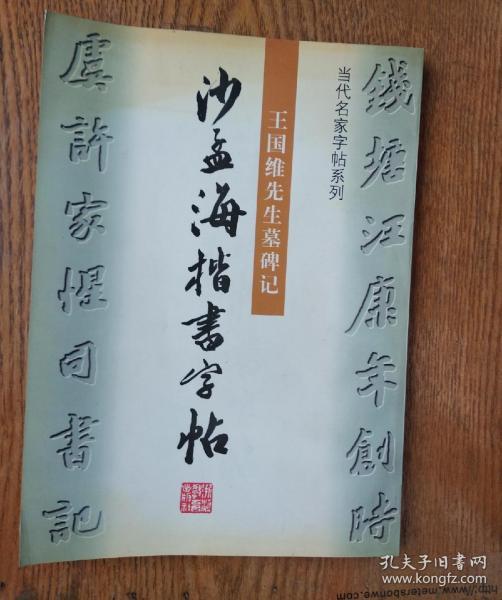 鐵塘江康年創時
当代名家字帖系列
王国维先生墓碑记
沙孟海楷書字帖
虞許家惺司書記
孔夫子旧書网
www.kongfz.com
http://www.metersbonwe.com